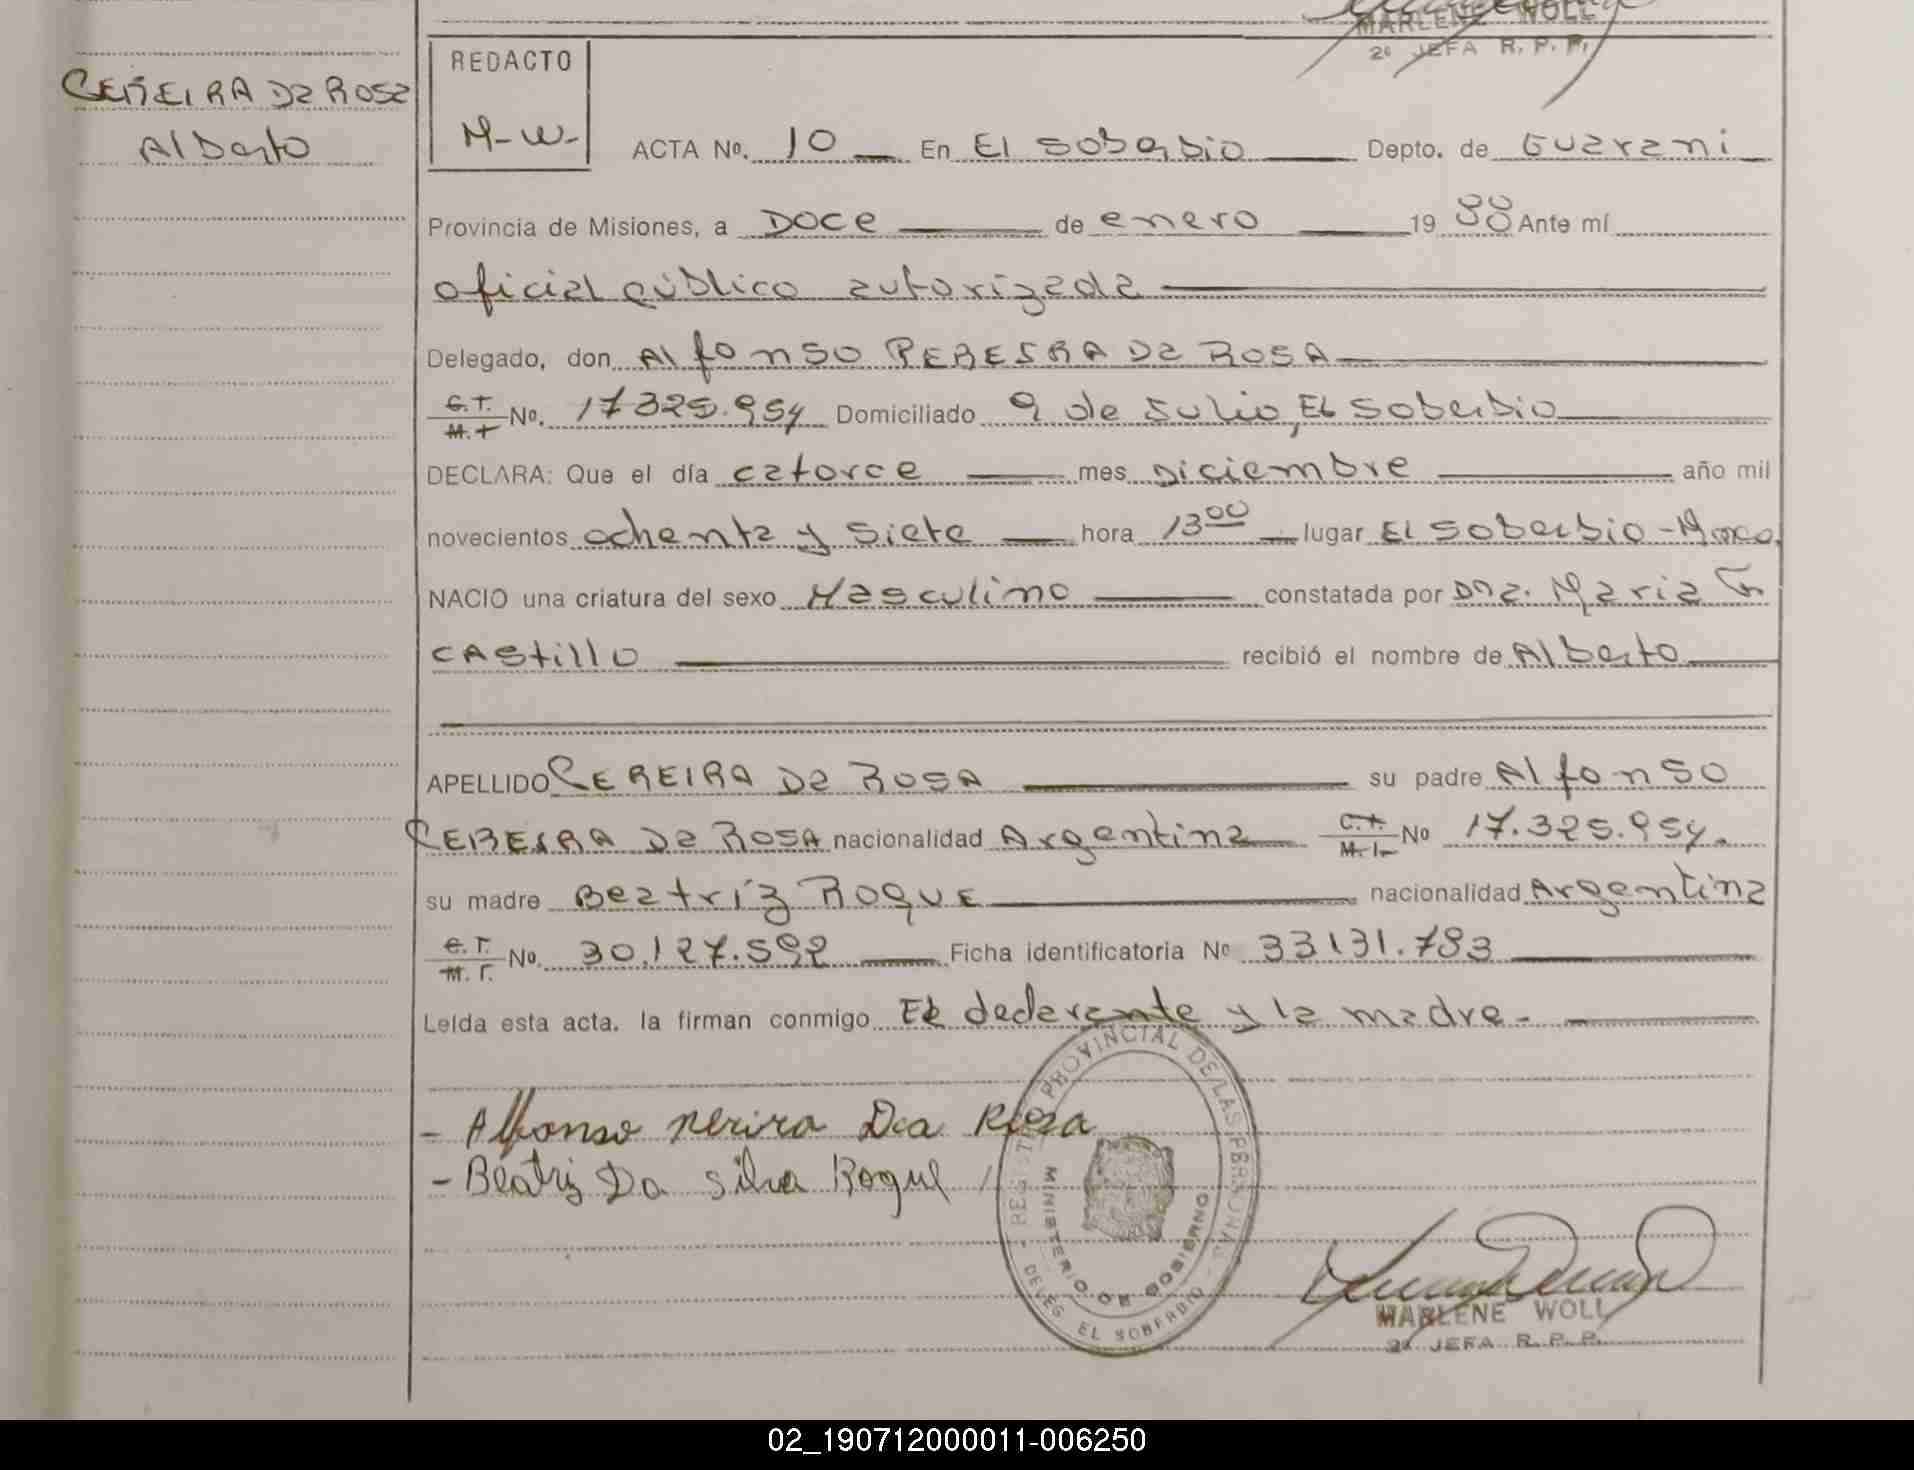 MARLENE WOLL
2º JEFA R. P. P.
PEREIRA Da Rosa
Alberto
REDACTO
M-W-
ACTA Nº. 10 En El Soberbio Depto. de Guarani
Provincia de Misiones, a Doce de enero 1988 Ante mí
oficial público autorizada
Delegado, don Alfonso PEREIRA Da ROSA
C.T. M.I Nº. 17325.954 Domiciliado 9 de Julio, El Soberbio
DECLARA: Que el día catorce mes Diciembre año mil
novecientos ochenta y siete hora 13 00 lugar El Soberbio -
NACIO una criatura del sexo Masculino constatada por Dña. Maria G
CAStillo recibió el nombre de Alberto
APELLIDO PEREIRA Da ROSA su padre Alfonso
PEREIRA Da ROSA nacionalidad Argentina C.I. M.I. Nº 17.325.954.
su madre Beatríz ROQUE nacionalidad Argentina
C.I. M.I. Nº. 30.127.592 Ficha identificatoria Nº 33131.783
Leída esta acta. la firman conmigo El declarante y la madre.
- Alfonso perira Da Rosa
- Beatriz Da silva Roque
REGISTRO PROVINCIAL DE LAS PERSONAS
MINISTERIO DE GOBIERNO
DELEG. EL SOBERBIO
MARLENE WOLL
2º JEFA R. P. P.
02_190712000011-006250